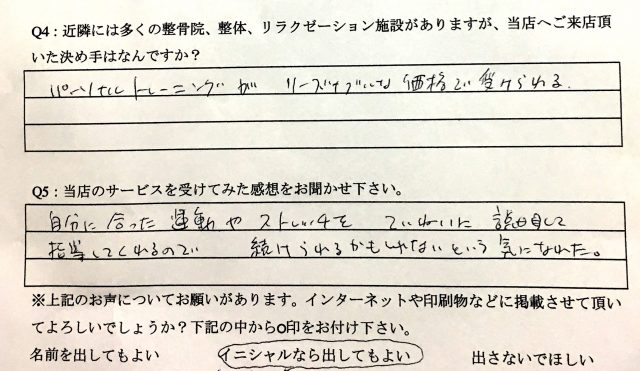 Q4：近隣には多くの整骨院、整体、リラクゼーション施設がありますが、当店へご来店頂
いた決め手はなんですか？
パーソナルトレーニングが リーズナブルな価格で受けられる.
Q5：当店のサービスを受けてみた感想をお聞かせ下さい。
自分に合った運動やストレッチを ていねいに説明して
指導してくれるので 続けられるかもしれないという気になれた。
※上記のお声についてお願いがあります。インターネットや印刷物などに掲載させて頂い
てよろしいでしょうか？下記の中から○印をお付け下さい。
名前を出してもよい イニシャルなら出してもよい 出さないでほしい